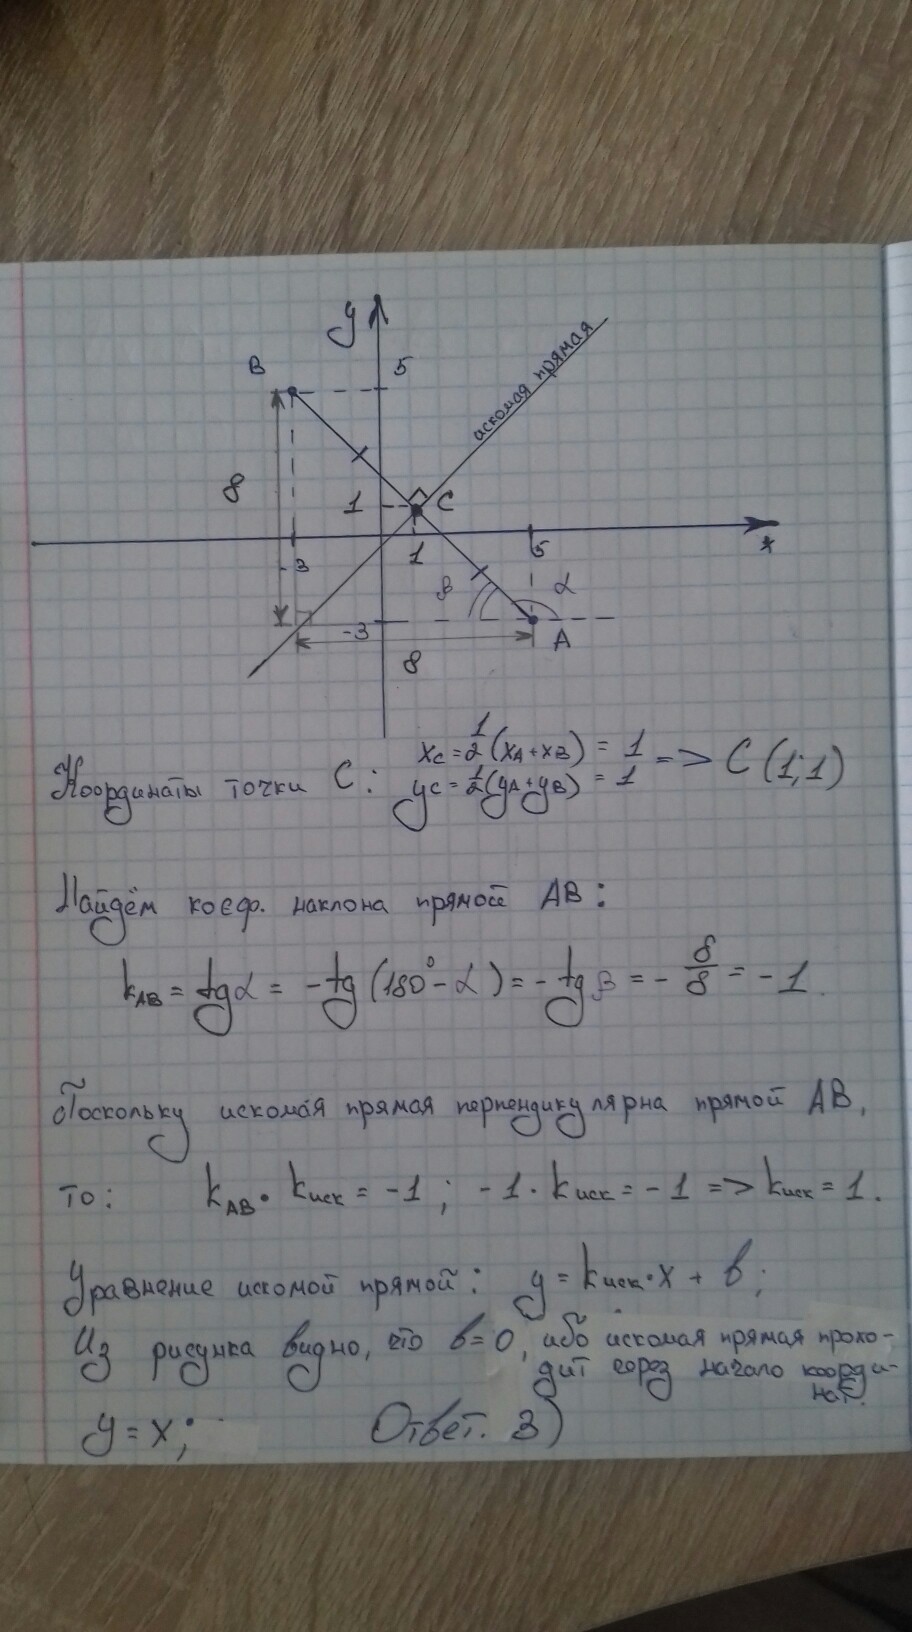 y
B
5
искомая прямая
8
1
C
x
-3
1
5
β
α
-3
A
8
Координаты точки C: xC = 1/2 (xA + xB) = 1 => C (1;1)
yC = 1/2 (yA + yB) = 1
Найдём коеф. наклона прямой AB:
kAB = tgα = -tg (180° - α) = - tg β = - 8/8 = -1.
Поскольку искомая прямая перпендикулярна прямой AB,
то: kAB · kиск = -1; -1 · kиск = -1 => kиск = 1.
Уравнение искомой прямой: y = kиск · x + b;
Из рисунка видно, что b = 0, ибо искомая прямая прохо-
дит через начало коорди-
нат.
y = x; Ответ. 3)